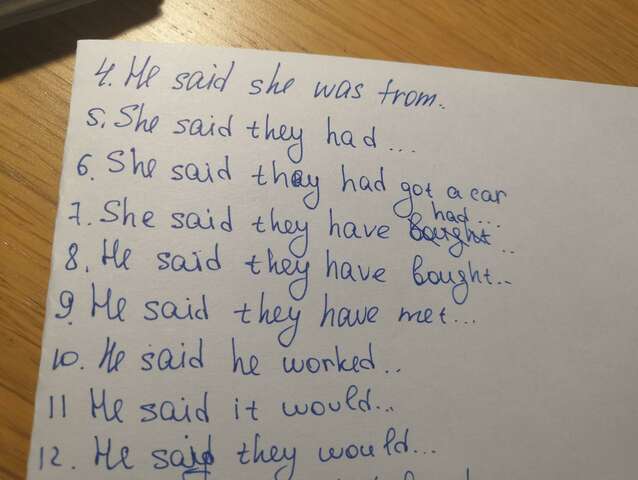 4. He said she was from..
5. She said they had...
6. She said they had got a car
7. She said they have bought had.....
8. He said they have bought..
9. He said they have met...
10. He said he worked..
11 He said it would...
12. He said they would...